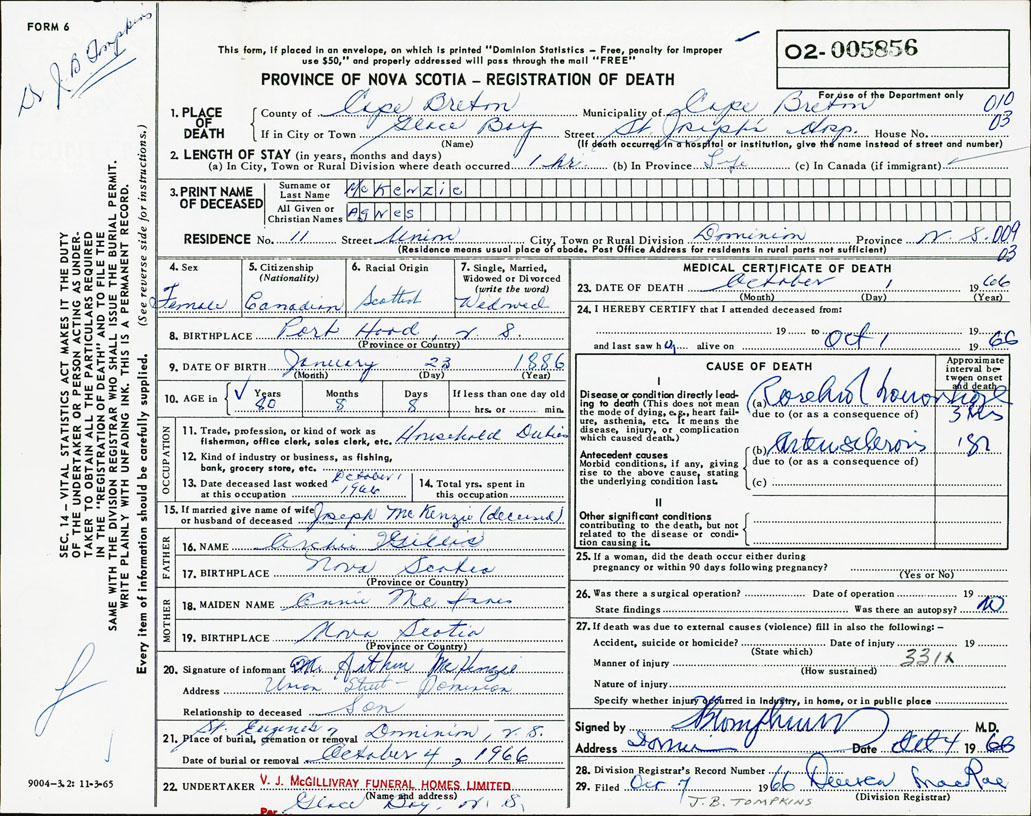 FORM 6
Dr J. B. Tompkins
This form, if placed in an envelope, on which is printed "Dominion Statistics – Free, penalty for improper
use $50," and properly addressed will pass through the mail "FREE"
PROVINCE OF NOVA SCOTIA – REGISTRATION OF DEATH
02-005856
For use of the Department only
010
03
1. PLACE OF DEATH
County of Cape Breton Municipality of Cape Breton
If in City or Town Glace Bay Street St. Joseph's Hosp. House No.
(Name) (If death occurred in a hospital or institution, give the name instead of street and number)
2. LENGTH OF STAY (in years, months and days)
(a) In City, Town or Rural Division where death occurred 1 hr. (b) In Province Life (c) In Canada (if immigrant)
3. PRINT NAME OF DECEASED
Surname or Last Name McKenzie
All Given or Christian Names Agnes
RESIDENCE No. 11 Street Union City, Town or Rural Division Dominion Province N.S. 009
(Residence means usual place of abode. Post Office Address for residents in rural parts not sufficient) 03
4. Sex
Female
5. Citizenship (Nationality)
Canadian
6. Racial Origin
Scottish
7. Single, Married, Widowed or Divorced (write the word)
Widowed
8. BIRTHPLACE Port Hood, N.S.
(Province or Country)
9. DATE OF BIRTH January 23 1886
(Month) (Day) (Year)
10. AGE in Years Months Days If less than one day old
80 8 8 hrs. or min.
OCCUPATION
11. Trade, profession, or kind of work as
fisherman, office clerk, sales clerk, etc. Household Duties
12. Kind of industry or business, as fishing,
bank, grocery store, etc.
13. Date deceased last worked at this occupation October 1 1966
14. Total yrs. spent in this occupation
15. If married give name of wife
or husband of deceased Joseph McKenzie (deceased)
FATHER
16. NAME Archie Gillis
17. BIRTHPLACE Nova Scotia
(Province or Country)
MOTHER
18. MAIDEN NAME Annie Mc
19. BIRTHPLACE Nova Scotia
(Province or Country)
20. Signature of informant Mr. Arthur McKenzie
Address Union Street - Dominion
Relationship to deceased Son
21. Place of burial, cremation or removal St. Eugene's Dominion, N.S.
Date of burial or removal October 4, 1966
22. UNDERTAKER V. J. McGILLIVRAY FUNERAL HOMES LIMITED
(Name and address)
Per Glace Bay, N.S.
MEDICAL CERTIFICATE OF DEATH
23. DATE OF DEATH October 1 1966
(Month) (Day) (Year)
24. I HEREBY CERTIFY that I attended deceased from:
19 to Oct 1 19
and last saw her alive on 1966
CAUSE OF DEATH
Approximate interval between onset and death
I
Disease or condition directly leading to death (This does not mean the mode of dying, e.g., heart failure, asthenia, etc. It means the disease, injury, or complication which caused death.)
(a) 3 hrs
due to (or as a consequence of)
Antecedent causes
Morbid conditions, if any, giving rise to the above cause, stating the underlying condition last.
(b) arteriosclerosis
due to (or as a consequence of)
(c)
II
Other significant conditions
contributing to the death, but not related to the disease or condition causing it.
25. If a woman, did the death occur either during
pregnancy or within 90 days following pregnancy?
(Yes or No)
26. Was there a surgical operation? Date of operation 19
State findings Was there an autopsy? No
27. If death was due to external causes (violence) fill in also the following: –
Accident, suicide or homicide? Date of injury 19
(State which)
Manner of injury 331X
(How sustained)
Nature of injury
Specify whether injury occurred in Industry, in home, or in public place
Signed by M.D.
Address Date Oct 4 1966
28. Division Registrar's Record Number
29. Filed Oct 7 1966 MacRae
J.B. TOMPKINS (Division Registrar)
SEC. 14 – VITAL STATISTICS ACT MAKES IT THE DUTY
OF THE UNDERTAKER OR PERSON ACTING AS UNDER-
TAKER TO OBTAIN ALL THE PARTICULARS REQUIRED
IN THE "REGISTRATION OF DEATH" AND TO FILE THE
SAME WITH THE DIVISION REGISTRAR WHO SHALL ISSUE THE BURIAL PERMIT.
WRITE PLAINLY WITH UNFADING INK. THIS IS A PERMANENT RECORD.
Every item of information should be carefully supplied. (See reverse side for instructions.)
9004-3.2: 11-3-65